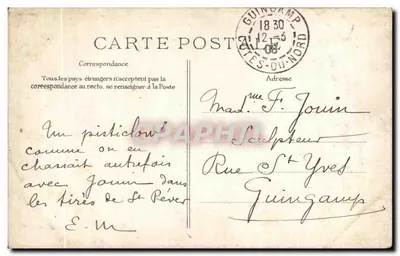 GUINGAMP
18 30
12-5
08
COTES-DU-NORD
CARTE POSTALE
Correspondance
Tous les pays étrangers n'acceptent pas la
correspondance au recto. se renseigner à la Poste
Adresse
Un pisticlové
comme on en
chassait autrefois
avec Jouin dans
les tirés de St Péver
E-M
Mad.me F. Jouin
Sculpteur
Rue St Yves
Guingamp
PRCARTE